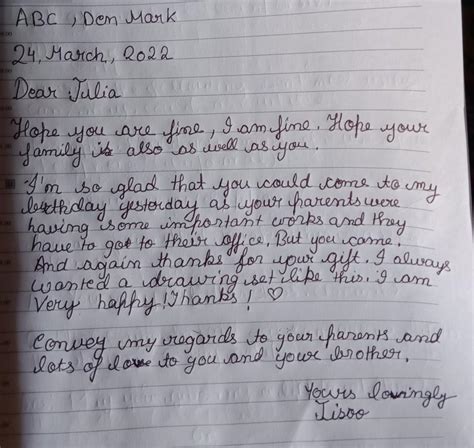 ABC, Den Mark
24, March, 2022
Dear Julia
Hope you are fine, I am fine. Hope your
family is also as well as you.
I'm so glad that you could come to my
birthday yesterday as your parents were
having some important works and they
have to got to their office. But you came.
And again thanks for your gift. I always
wanted a drawing set like this. I am
Very happy! Thanks! ♡
Convey my regards to your parents and
lots of love to you and your brother.
Yours lovingly
Jisoo